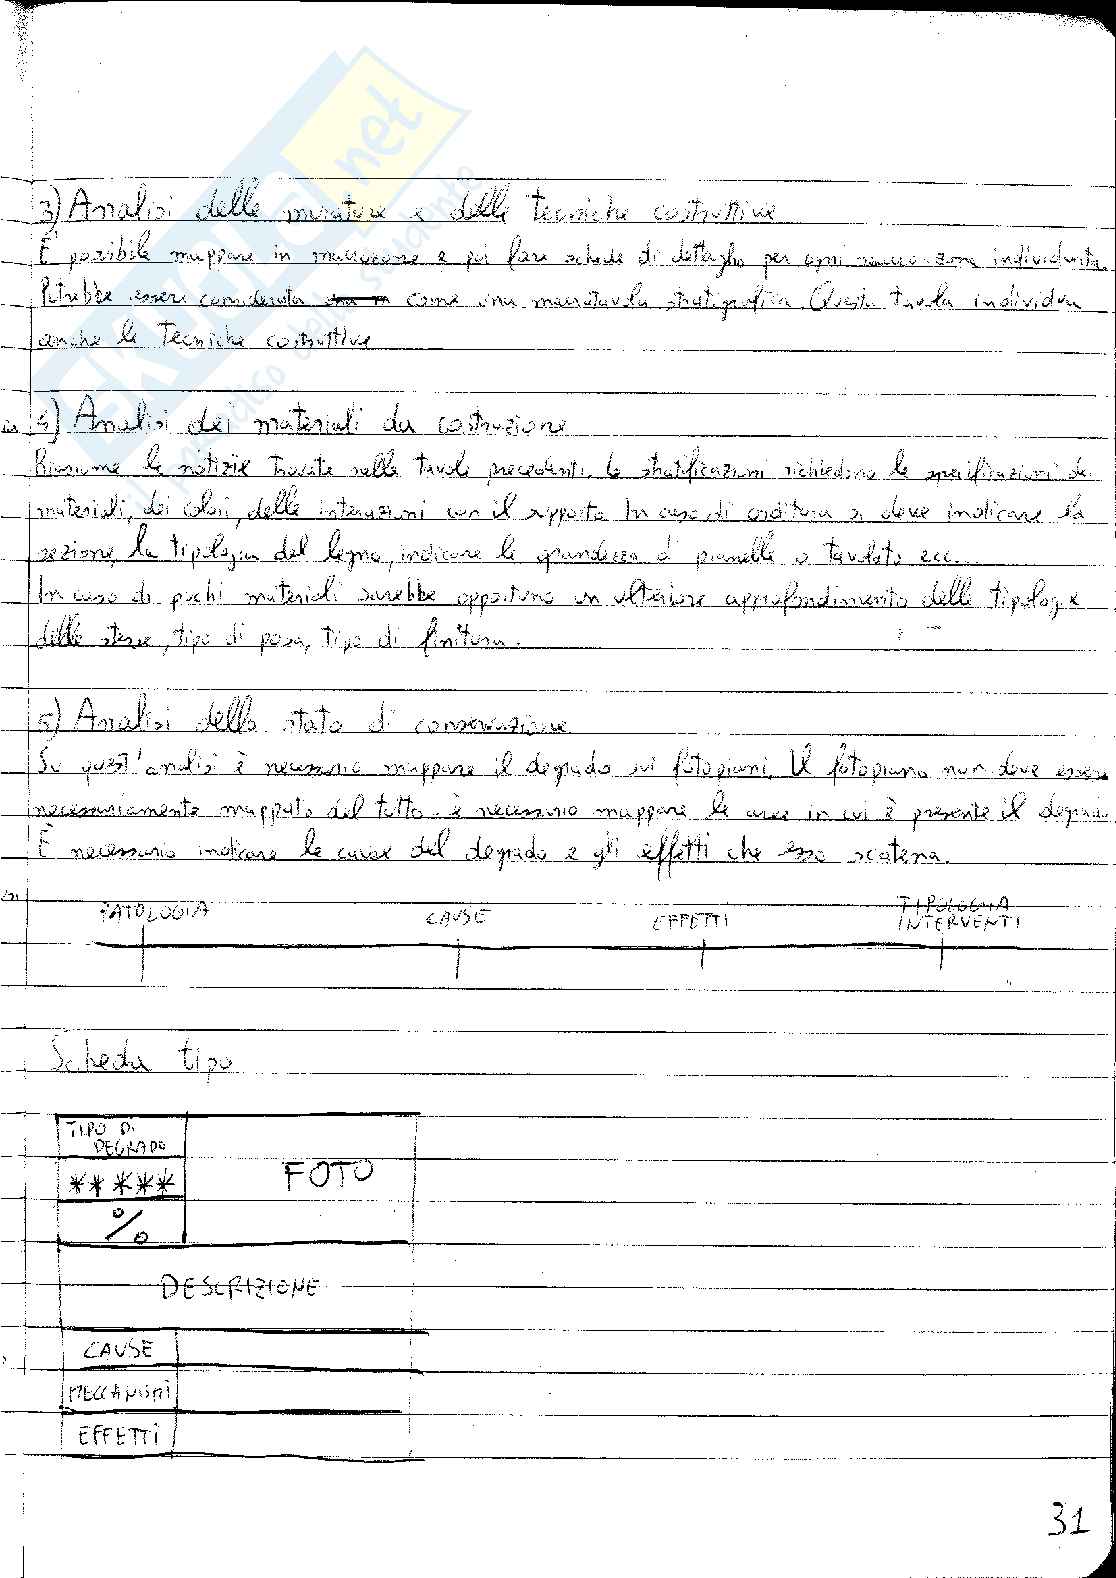 3) Analisi delle murature e delle tecniche costruttive
È possibile mappare in macrozone e poi fare schede di dettaglio per ogni macrozona individuata.
Potrebbe essere considerata come una macrotavola stratigrafica. Questa tavola individua
anche le tecniche costruttive
4) Analisi dei materiali da costruzione
Riassume le notizie trovate nelle tavole precedenti. Le stratificazioni richiedono le specificazioni dei
materiali, dei colori, delle interazioni con il supporto. In caso di orditura si deve indicare la
sezione, la tipologia del legno, indicare la grandezza di pianelle o tavolato ecc.
In caso di pochi materiali sarebbe opportuno un ulteriore approfondimento delle tipologie
delle stesse, tipo di posa, tipo di finitura.
5) Analisi dello stato di conservazione
Su quest'analisi è necessario mappare il degrado sui fotopiani. Il fotopiano non deve essere
necessariamente mappato del tutto. è necessario mappare le aree in cui è presente il degrado
È necessario indicare le cause del degrado e gli effetti che esso scatena.
PATOLOGIA CAUSE EFFETTI TIPOLOGIA INTERVENTI
Scheda tipo
TIPO DI
DEGRADO
*****
FOTO
%
DESCRIZIONE
CAUSE
MECCANISMI
EFFETTI
31
SKUOLA.net